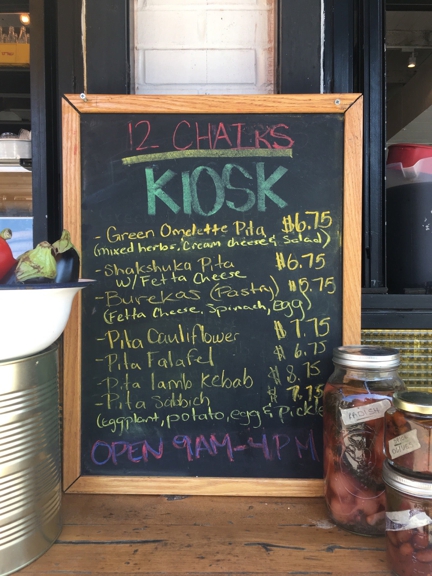 12 CHAIRS
KIOSK
- Green Omelette Pita $6.75
(mixed herbs, Cream cheese & Salad)
- Shakshuka Pita $6.75
W/Fetta Cheese
- Burekas (Pastry) $5.75
(Fetta Cheese, Spinach, Egg)
- Pita Cauliflower $7.75
- Pita Falafel $6.75
- Pita lamb kebab $8.75
- Pita Sabbich $7.75
(eggplant, potato, egg & Pickle
OPEN 9AM-4PM